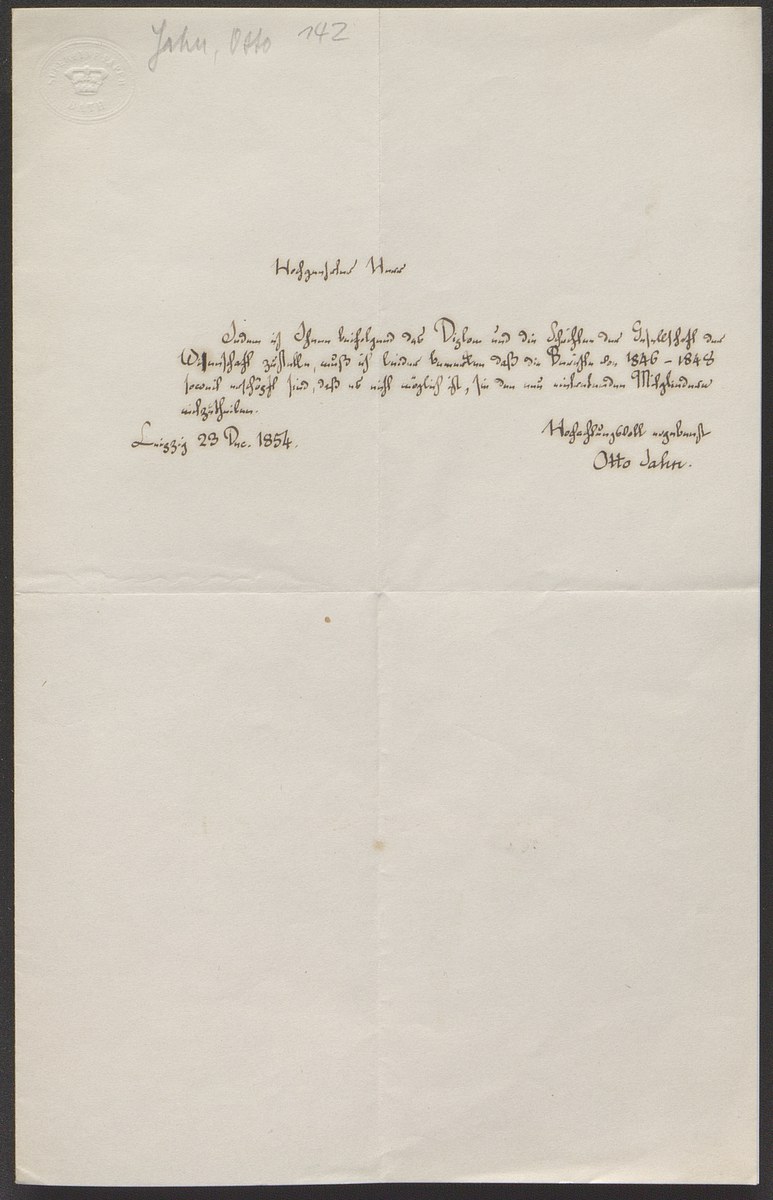 Jahn, Otto 142
BATH
Hochgeehrter Herr
Indem ich Ihnen beifolgend das Diplom und die Schriften der Gesellschaft der
Wissenschaft zustelle, muß ich leider bemerken daß die Berichte von 1846 – 1848
soweit erschöpft sind, daß es nicht möglich ist, sie den neu eintretenden Mitgliedern
mitzutheilen.
Leipzig 23 Dec. 1854.
Hochachtungsvoll ergebenst
Otto Jahn.